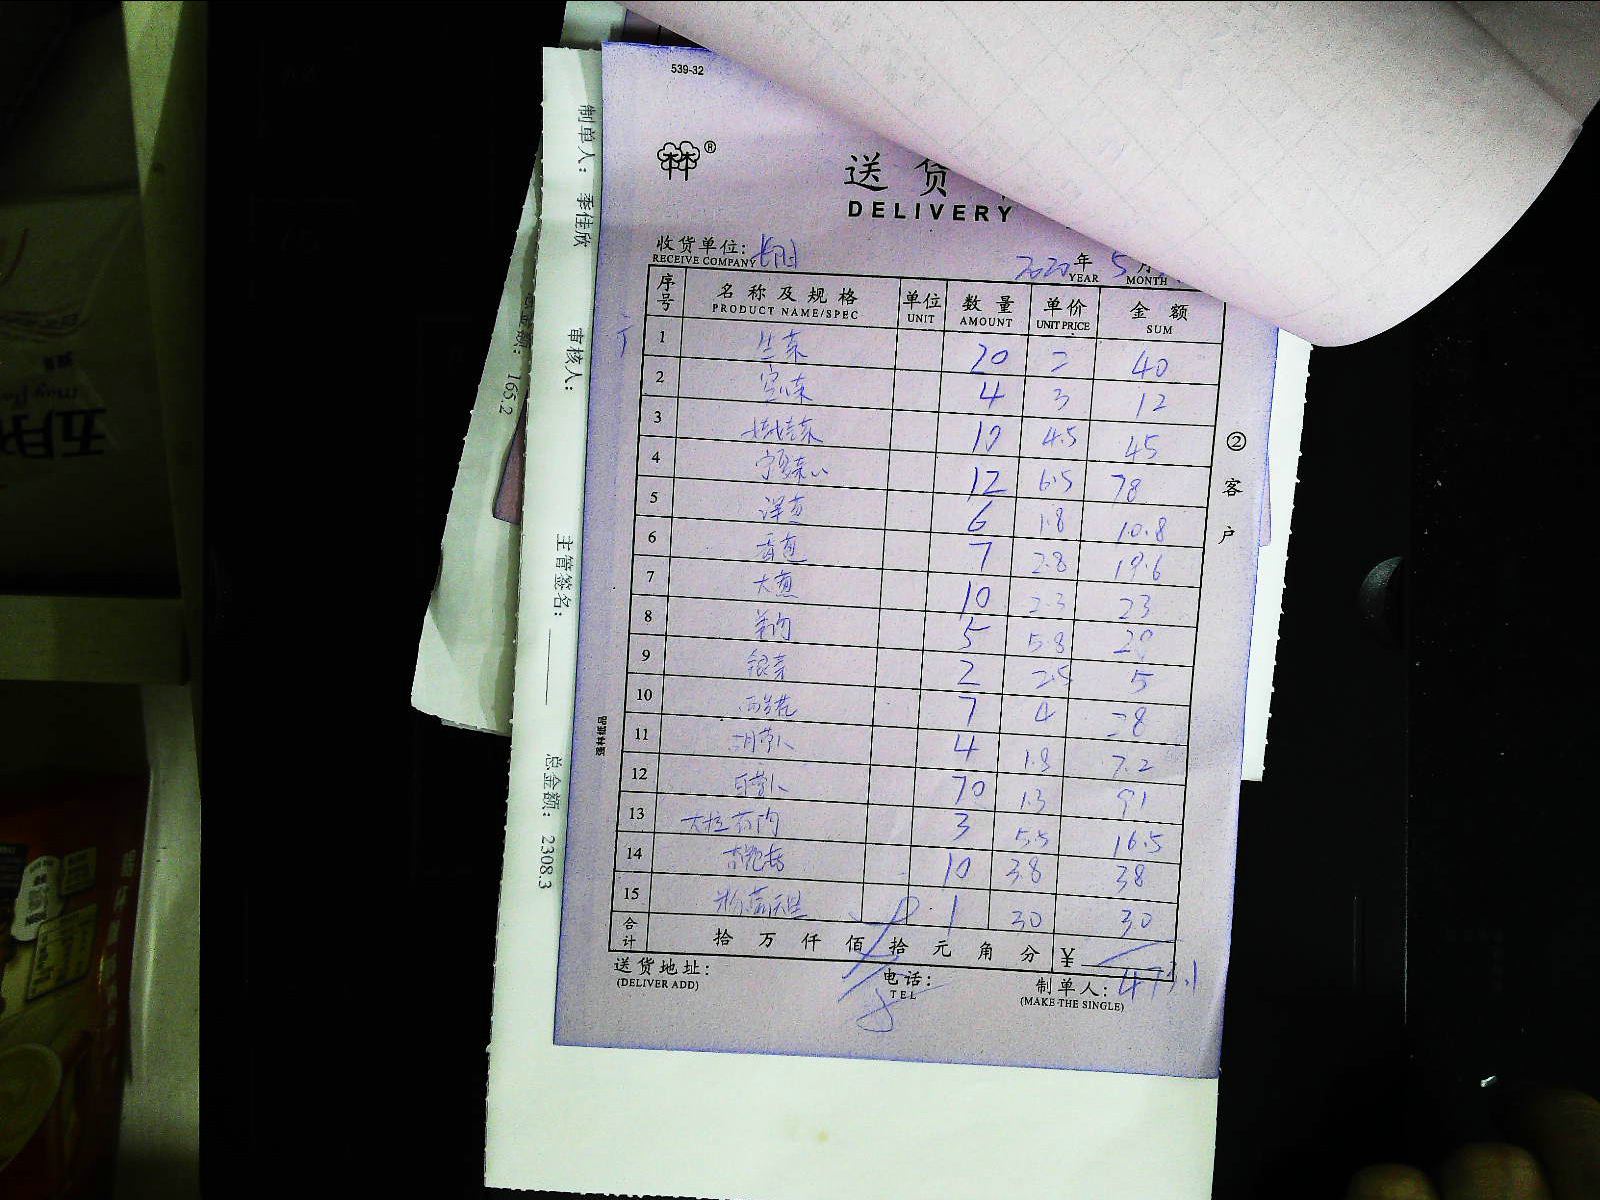 539-32
®
送 货
DELIVERY
收货单位:
RECEIVE COMPANY
2020年 5月
YEAR MONTH
序号 名称及规格 单位 数量 单价 金额
PRODUCT NAME/SPEC UNIT AMOUNT UNIT PRICE SUM
1 生菜 20 2 40
2 空心菜 4 3 12
3 10 4.5 45
4 12 6.5 78
5 洋葱 6 1.8 10.8
6 香葱 7 2.8 19.6
7 大葱 10 2.3 23
8 5 5.8 29
9 银芽 2 2.5 5
10 西兰花 7 4 28
11 胡萝卜 4 1.8 7.2
12 白萝卜 70 1.3 91
13 3 5.5 16.5
14 杏鲍菇 10 3.8 38
15 1 30 30
合计 拾 万 仟 佰 拾 元 角 分 ¥
473.1
送货地址: 电话: 制单人:
(DELIVER ADD) TEL (MAKE THE SINGLE)
②客户
强林纸品
制单人: 季佳欣
审核人:
主管签名:
总金额: 2308.3
额: 165.2